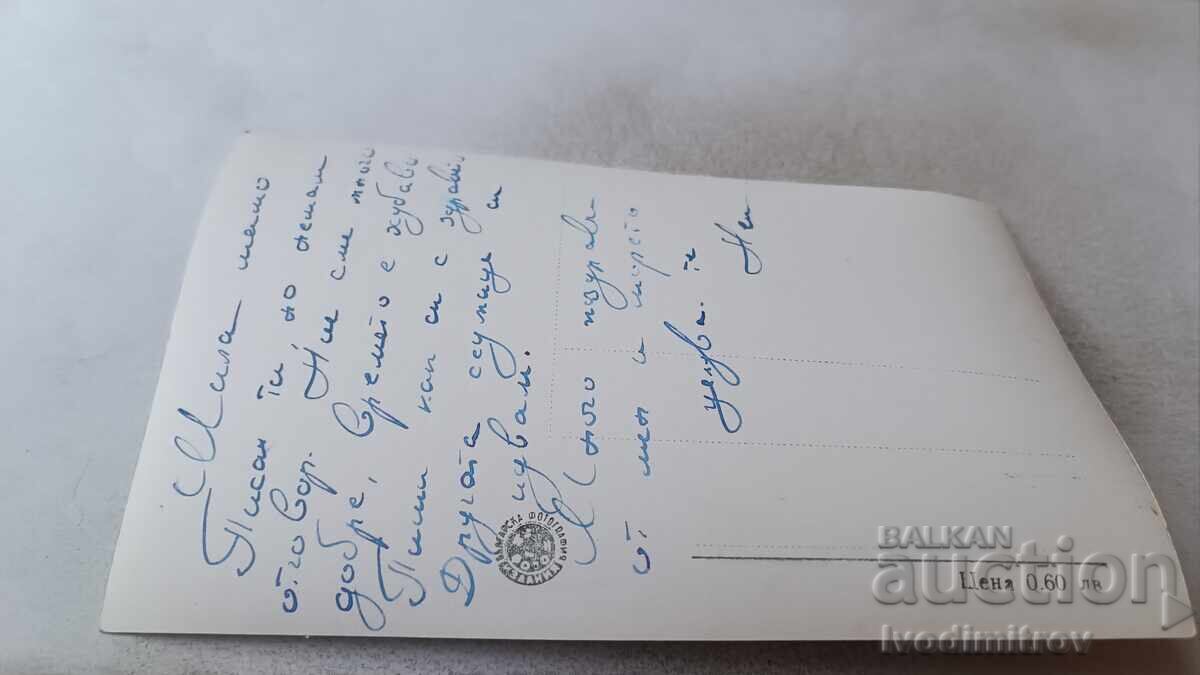 Мила мамо
Писах ти, но немам
отговор. Ние сме много
добре, времето е хубаво.
Пиши как си с здравето
Другата седмица си
идвам.
Много поздрави
от мен и морето
целува те
БЪЛГАРСКА ФОТОГРАФИЯ
Цена 0.60 лв
BALKAN
auction
Ivodimitrov